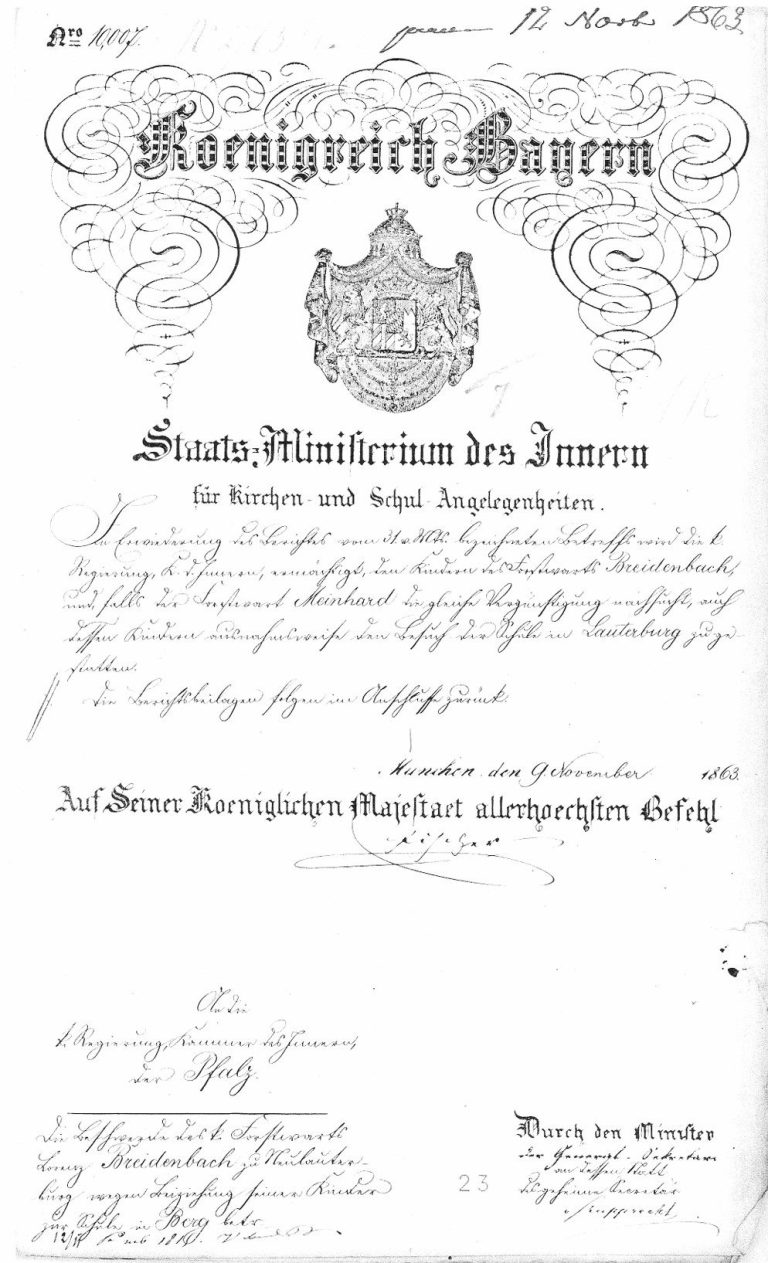 Nro 10,007.
12 Novb 1863
Koenigreich Bayern
Staats-Ministerium des Innern
für Kirchen- und Schul-Angelegenheiten.
In Erwiederung des Berichtes vom 31. v. Mts. bezeichneten Betreffs wird die k.
Regierung, K. d. Innern, ermächtigt, den Kindern des Forstwarts Breidenbach,
und, falls der Forstwart Meinhard die gleiche Vergünstigung nachsucht, auch
dessen Kindern ausnahmsweise den Besuch der Schule in Lauterburg zu ge-
statten.
Die Berichtsbeilagen folgen im Anschlusse zurück.
München, den 9. November 1863.
Auf Seiner Koeniglichen Majestaet allerhoechsten Befehl
An die
k. Regierung, Kammer des Innern,
der Pfalz.
Die Beschwerde des k. Forstwarts
Lorenz Breidenbach zu Neulauter-
burg wegen Beiziehung seiner Kinder
zur Schule in Berg betr.
Durch den Minister
der General-Sekretär
an dessen Statt
der geheime Secretär
23
12/11